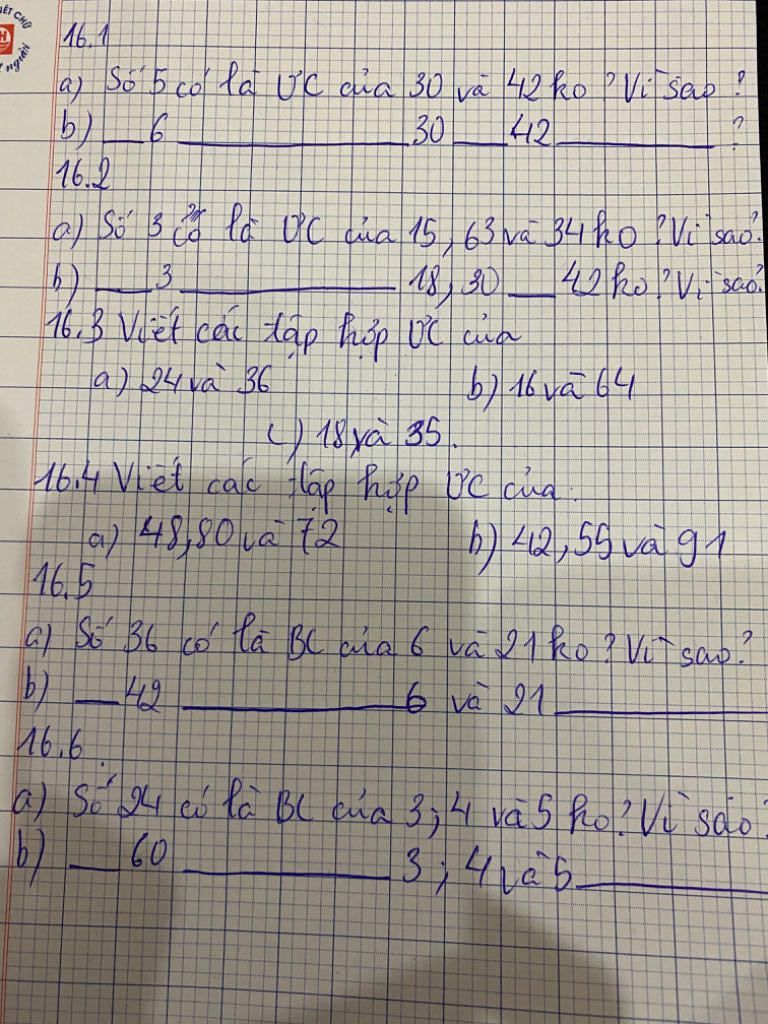 ẾT CHỮ
H
người
16.1
a) Số 5 có là ƯC của 30 và 42 ko? Vì sao?
b) ___ 6 ___ 30 ___ 42 ___ ?
16.2
a) Số 3 có là ƯC của 15, 63 và 34 ko? Vì sao?
b) ___ 3 ___ 18, 30 ___ 42 ko? Vì sao?
16.3 Viết các tập hợp ƯC của
a) 24 và 36 b) 16 và 64
c) 18 và 35.
16.4 Viết các tập hợp ƯC của:
a) 48, 80 và 72 b) 42, 55 và 91
16.5
a) Số 36 có là BC của 6 và 21 ko? Vì sao?
b) ___ 42 ___ 6 và 21 ___
16.6.
a) Số 24 có là BC của 3; 4 và 5 ko? Vì sao?
b) ___ 60 ___ 3; 4 và 5 ___